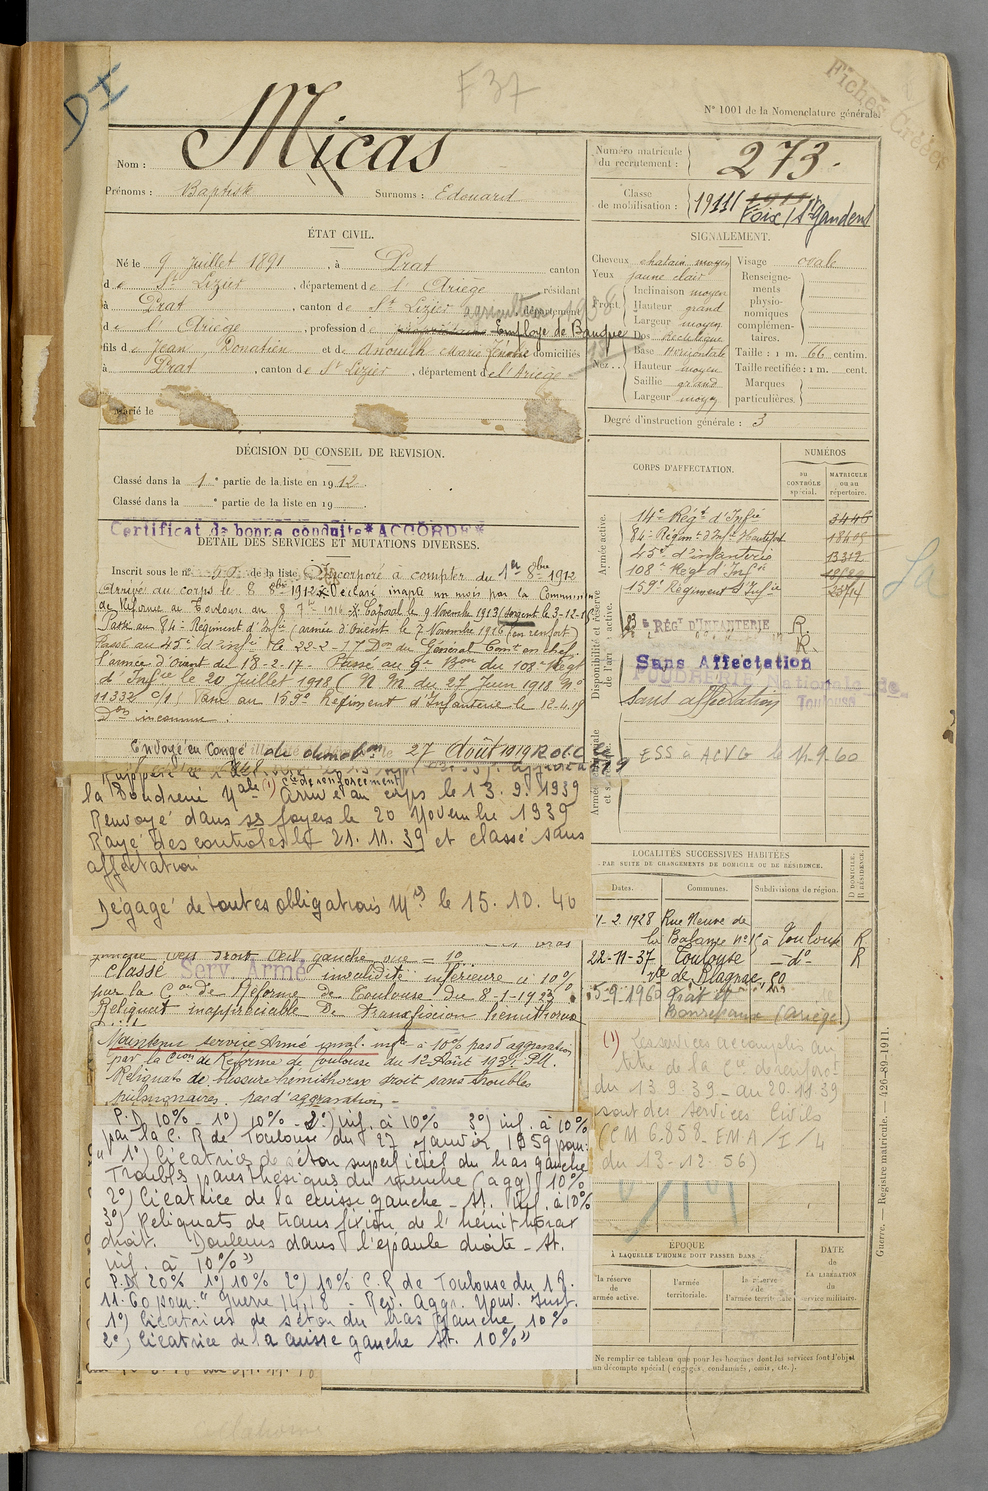 DI
F 37
Fichier Créées
N° 1001 de la Nomenclature générale.
Nom : Micas
Prénoms : Baptiste Surnoms : Edouard
Numéro matricule du recrutement : 273.
Classe de mobilisation : 1911
Foix / St Gaudens
ÉTAT CIVIL.
Né le 9 Juillet 1891, à Prat canton
de St Lizier, département de l'Ariège résidant
à Prat, canton de St Lizier département
agriculteur
de l'Ariège, profession de Employé de Banque
fils de Jean Donatien et de Anouilh Marie domiciliés
à Prat, canton de St Lizier, département de l'Ariège
Marié le
SIGNALEMENT.
Cheveux chatain moyen Visage ovale
Yeux jaune clair
Front Inclinaison moyen
Hauteur grand
Largeur moyen
Nez Dos Rectiligne
Base Horizontale
Hauteur moyen
Saillie grand
Largeur moyen
Renseignements physionomiques complémentaires.
Taille : 1 m. 66 centim.
Taille rectifiée : 1 m. cent.
Marques particulières.
Degré d'instruction générale : 3
DÉCISION DU CONSEIL DE REVISION.
Classé dans la 1e partie de la liste en 1912.
Classé dans la e partie de la liste en 19
Certificat de bonne conduite "ACCORDÉ"
DÉTAIL DES SERVICES ET MUTATIONS DIVERSES.
Inscrit sous le n° de la liste Incorporé à compter du 1er 8bre 1912
Arrivé au corps le 8 8bre 1912 Déclaré inapte un mois par la Commission
de Réforme de Toulouse du 8 7bre 1916 Caporal le 9 Novembre 1913 Sergent le 3-12-15
Passé au 84e Régiment d'Infie (armée d'Orient le 7 Novembre 1916 (en renfort)
Passé au 45e d'infie le 22-2-17 Don du Général Comt en chef
l'armée d'Orient du 18-2-17. Passé au 9e Bon du 108e Régt
d'Infie le 20 Juillet 1918 (N M du 27 Juin 1918 N°
11332 c/1) Passé au 159e Régiment d'Infanterie le 12.4.19
Don inconnue.
Envoyé en Congé de démobon 27 Août 1919
la Poudrerie Nale (1) Cie de renforcement Arrivé au corps le 13.9.1939
Renvoyé dans ses foyers le 20 Novembre 1939
Rayé des contrôles le 21.11.39 et classé sans
affectation
Dégagé de toutes obligations Mres le 15.10.40
classé Serv Armé invalidité inférieure à 10%
par la Con de Réforme de Toulouse du 8-1-1923
Reliquat inappréciable De transfixion hémithorax
Maintenu service armé inval. infre à 10% pas d'aggravation
par la Cion de Réforme de Toulouse du 12 Août 193
Reliquats de blessure hemithorax droit sans troubles
pulmonaires, pas d'aggravation -
P.D 10% - 1°) 10% - 2°) inf. à 10% 3°) inf. à 10%
par la C. R de Toulouse du 27 Janvier 1959 pour:
"1°) Cicatrices de séton superficiel du bras gauche
Troubles paresthésiques du membre (agg) 10%
2°) Cicatrice de la cuisse gauche - St. inf. à 10%
3°) Reliquats de transfixion de l'hémithorax
droit. Douleurs dans l'épaule droite - St.
inf. à 10%"
P.Df 20% 1°) 10% 2°) 10% C. R de Toulouse du 18.
11.60 pour: "Guerre 14,18 - Rev. Aggr. Nouv. Inst.
1°) Cicatrices de séton du bras gauche 10%
2°) Cicatrice de la cuisse gauche St. 10%"
CORPS D'AFFECTATION.
NUMÉROS
au CONTRÔLE spécial.
MATRICULE ou au répertoire.
Armée active.
14e Régt d'Infie 3446
84e Régimt d'Inf 18405
45e d'infanterie 13312
108e Régt d'Infie
159e Régiment d'Infie
Disponibilité et réserve de l'armée active.
RÉGt D'INFANTERIE R.
R.
Sans Affectation
POUDRERIE Nationale de
Toulouse
Sans affectation
ESS à ACVG le 14-9-60
LOCALITÉS SUCCESSIVES HABITÉES
PAR SUITE DE CHANGEMENTS DE DOMICILE OU DE RÉSIDENCE.
Dates. Communes. Subdivisions de région.
D DOMICILE. R RÉSIDENCE.
1-2.1928 Rue Neuve de la Balance n° à Toulouse R
22-11-37 Toulouse -do- R
de Blagnac 80
5-9.1960 Prat et Bonrepaux (Ariège)
(1) Les services accomplis au
titre de la Cie de renforct
du 13.9.39 - au 20.11.39
sont des services Civils
(CM 6.858 - EMA/I/4
du 13-12-56)
ÉPOQUE
À LAQUELLE L'HOMME DOIT PASSER DANS
DATE DE LA LIBÉRATION du service militaire.
la réserve de l'armée active.
l'armée territoriale.
la réserve de l'armée territoriale
Ne remplir ce tableau que pour les hommes dont les services font l'objet
un décompte spécial (engagés, condamnés, omis, etc.).
Guerre. — Registre matricule. — 426-89-1911.